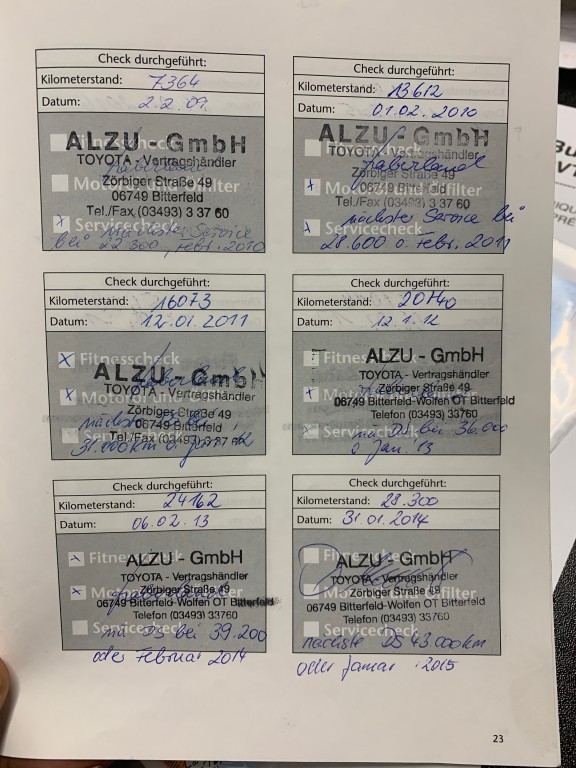 Check durchgeführt:
Kilometerstand: 7364
Datum: 2.2.09
ALZU - GmbH
TOYOTA - Vertragshändler
Zörbiger Straße 49
06749 Bitterfeld
Tel./Fax (03493) 3 37 60
Servicecheck
nächster Service
bei 22 300, Febr. 2010
Check durchgeführt:
Kilometerstand: 13612
Datum: 01.02.2010
ALZU - GmbH
TOYOTA - Vertragshändler
Zörbiger Straße 49
06749 Bitterfeld
Tel./Fax (03493) 3 37 60
Servicecheck
nächster Service bei
28.600 o. Febr. 2011
Check durchgeführt:
Kilometerstand: 16073
Datum: 12.01.2011
Fitnesscheck
ALZU - GmbH
TOYOTA - Vertragshändler
Zörbiger Straße 49
06749 Bitterfeld
Servicecheck
Tel./Fax (03493) 3 37 60
31.000 km o. Jan. 12
Check durchgeführt:
Kilometerstand: 20140
Datum: 12.1.12
Fitnesscheck
ALZU - GmbH
TOYOTA - Vertragshändler
Zörbiger Straße 49
06749 Bitterfeld-Wolfen OT Bitterfeld
Telefon (03493) 33760
Servicecheck
bei 36.000
o Jan. 13
Check durchgeführt:
Kilometerstand: 24162
Datum: 06.02.13
Fitnesscheck
ALZU - GmbH
TOYOTA - Vertragshändler
Zörbiger Straße 49
06749 Bitterfeld-Wolfen OT Bitterfeld
Telefon (03493) 33760
Servicecheck
bei 39.200
oder Februar 2014
Check durchgeführt:
Kilometerstand: 28.300
Datum: 31.01.2014
Fitnesscheck
ALZU - GmbH
TOYOTA - Vertragshändler
Zörbiger Straße 49
06749 Bitterfeld-Wolfen OT Bitterfeld
Telefon (03493) 33760
Servicecheck
nächste DS 43.000km
oder Januar 2015
23